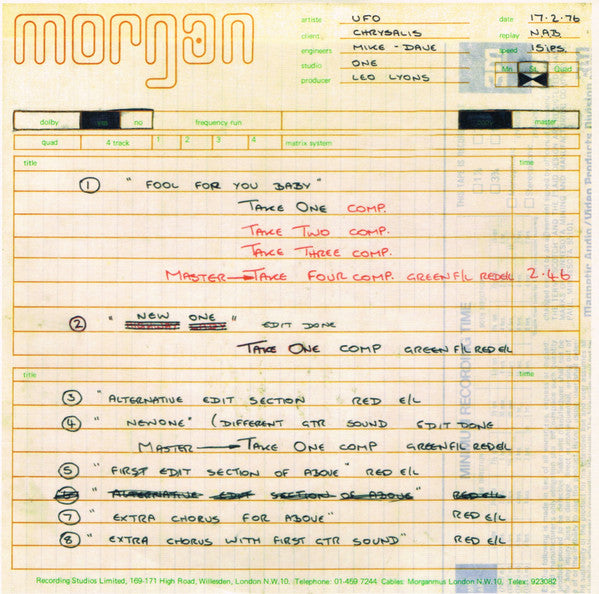 morgan
artiste UFO date 17.2.76
client CHRYSALIS replay N.A.B
engineers MIKE - DAVE speed 15ips
studio ONE Mn St. Quad
producer LEO LYONS
dolby yes no frequency run copy master
quad 4 track 1 2 3 4 matrix system
title time
1 "FOOL FOR YOU BABY"
TAKE ONE COMP.
TAKE TWO COMP.
TAKE THREE COMP.
MASTER → TAKE FOUR COMP. GREEN F/L RED E/L 2.46
2 "NEW ONE" EDIT DONE
TAKE ONE COMP GREEN F/L RED E/L
title time
3 "ALTERNATIVE EDIT SECTION RED E/L
4 "NEWONE" (DIFFERENT GTR SOUND EDIT DONE
MASTER → TAKE ONE COMP GREEN F/L RED E/L
5 "FIRST EDIT SECTION OF ABOVE" RED E/L
6 "ALTERNATIVE EDIT SECTION OF ABOVE" RED E/L
7 "EXTRA CHORUS FOR ABOVE" RED E/L
8 "EXTRA CHORUS WITH FIRST GTR SOUND" RED E/L
Recording Studios Limited, 169-171 High Road, Willesden, London N.W.10. Telephone: 01-459 7244 Cables: Morganmus London N.W.10. Telex: 923082
MINIMUM RECORDING TIME
Magnetic Audio/Video Products Division